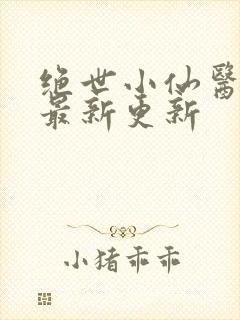 绝世小仙醫
最新更新
小猪乖乖